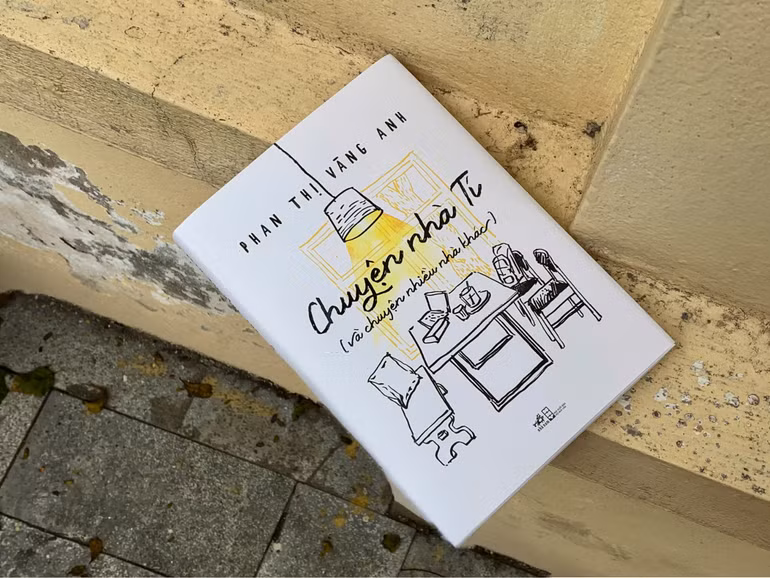 PHAN THỊ VÀNG ANH
Chuyện nhà Tí
(và chuyện nhiều nhà khác)